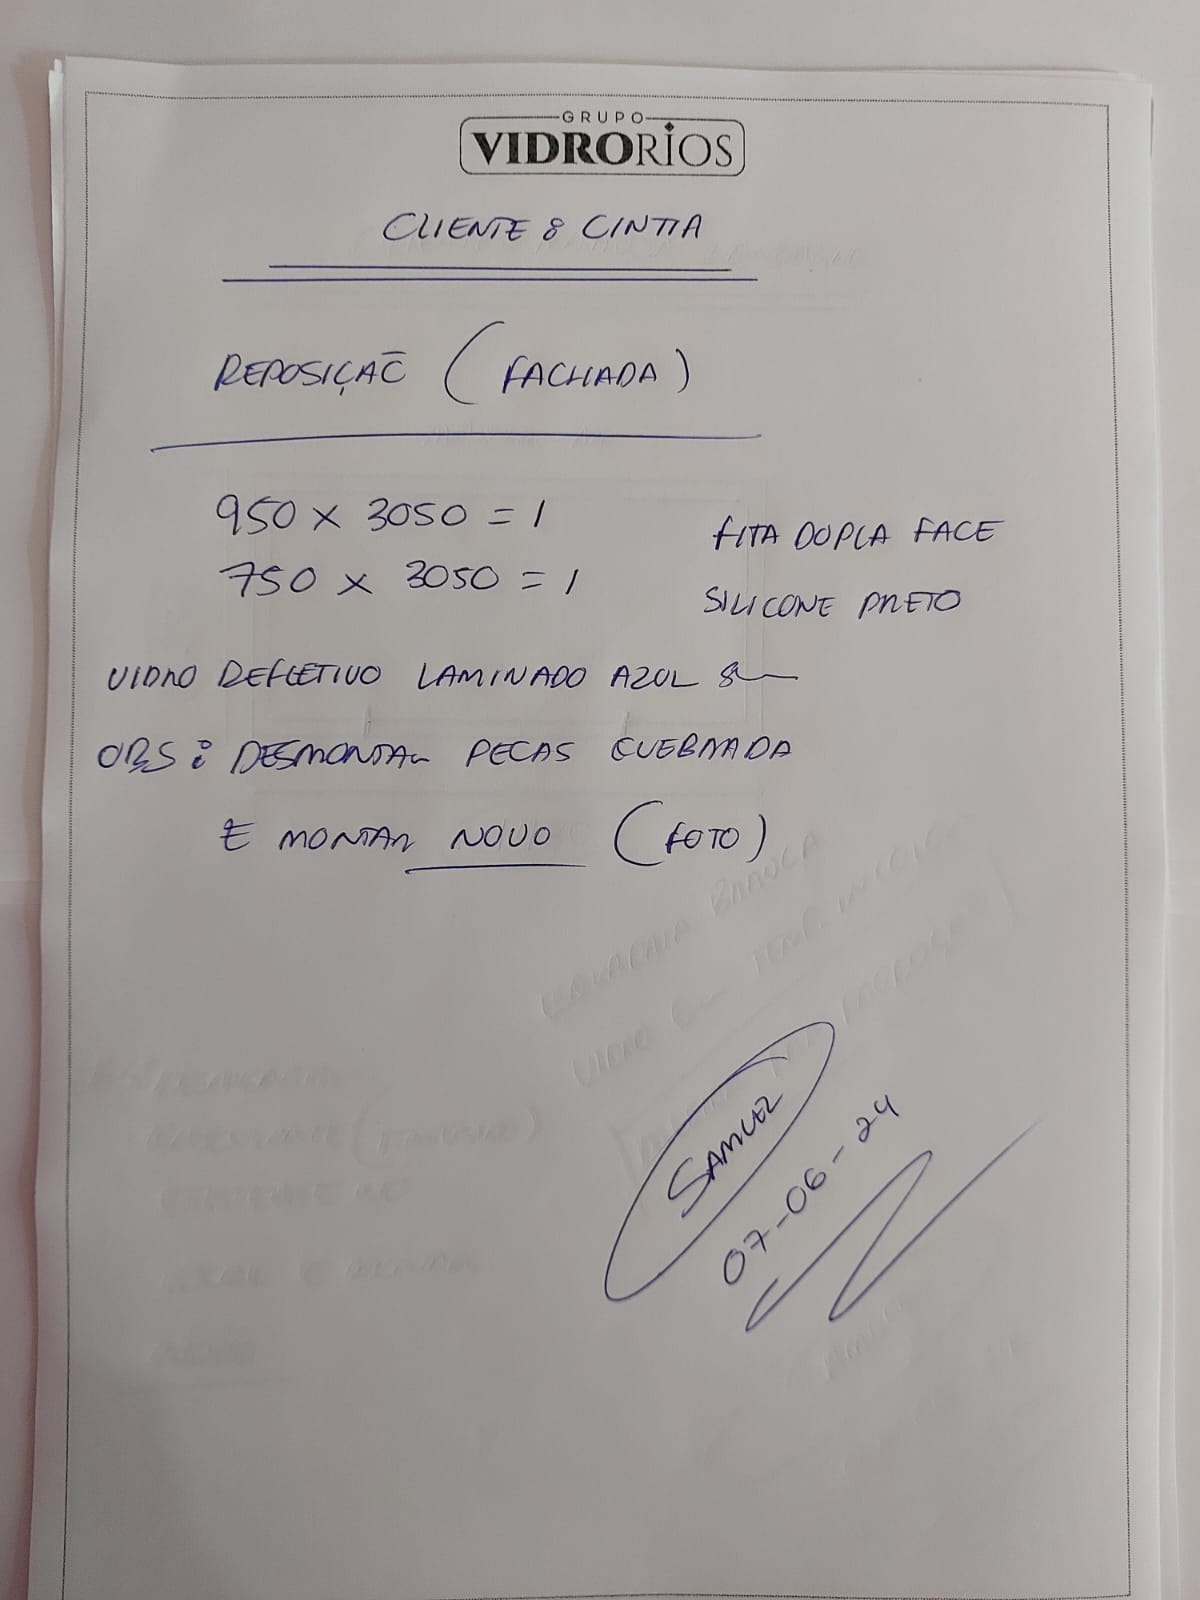 GRUPO
VIDRORIOS
CLIENTE : CINTIA
REPOSIÇÃO (FACHADA)
950 x 3050 = 1
FITA DUPLA FACE
750 x 3050 = 1
SILICONE PRETO
VIDRO REFLETIVO LAMINADO AZUL 8
OBS : DESMONTAR PECAS QUEBRADA
E MONTAR NOVO (FOTO)
SAMUEL
07-06-24